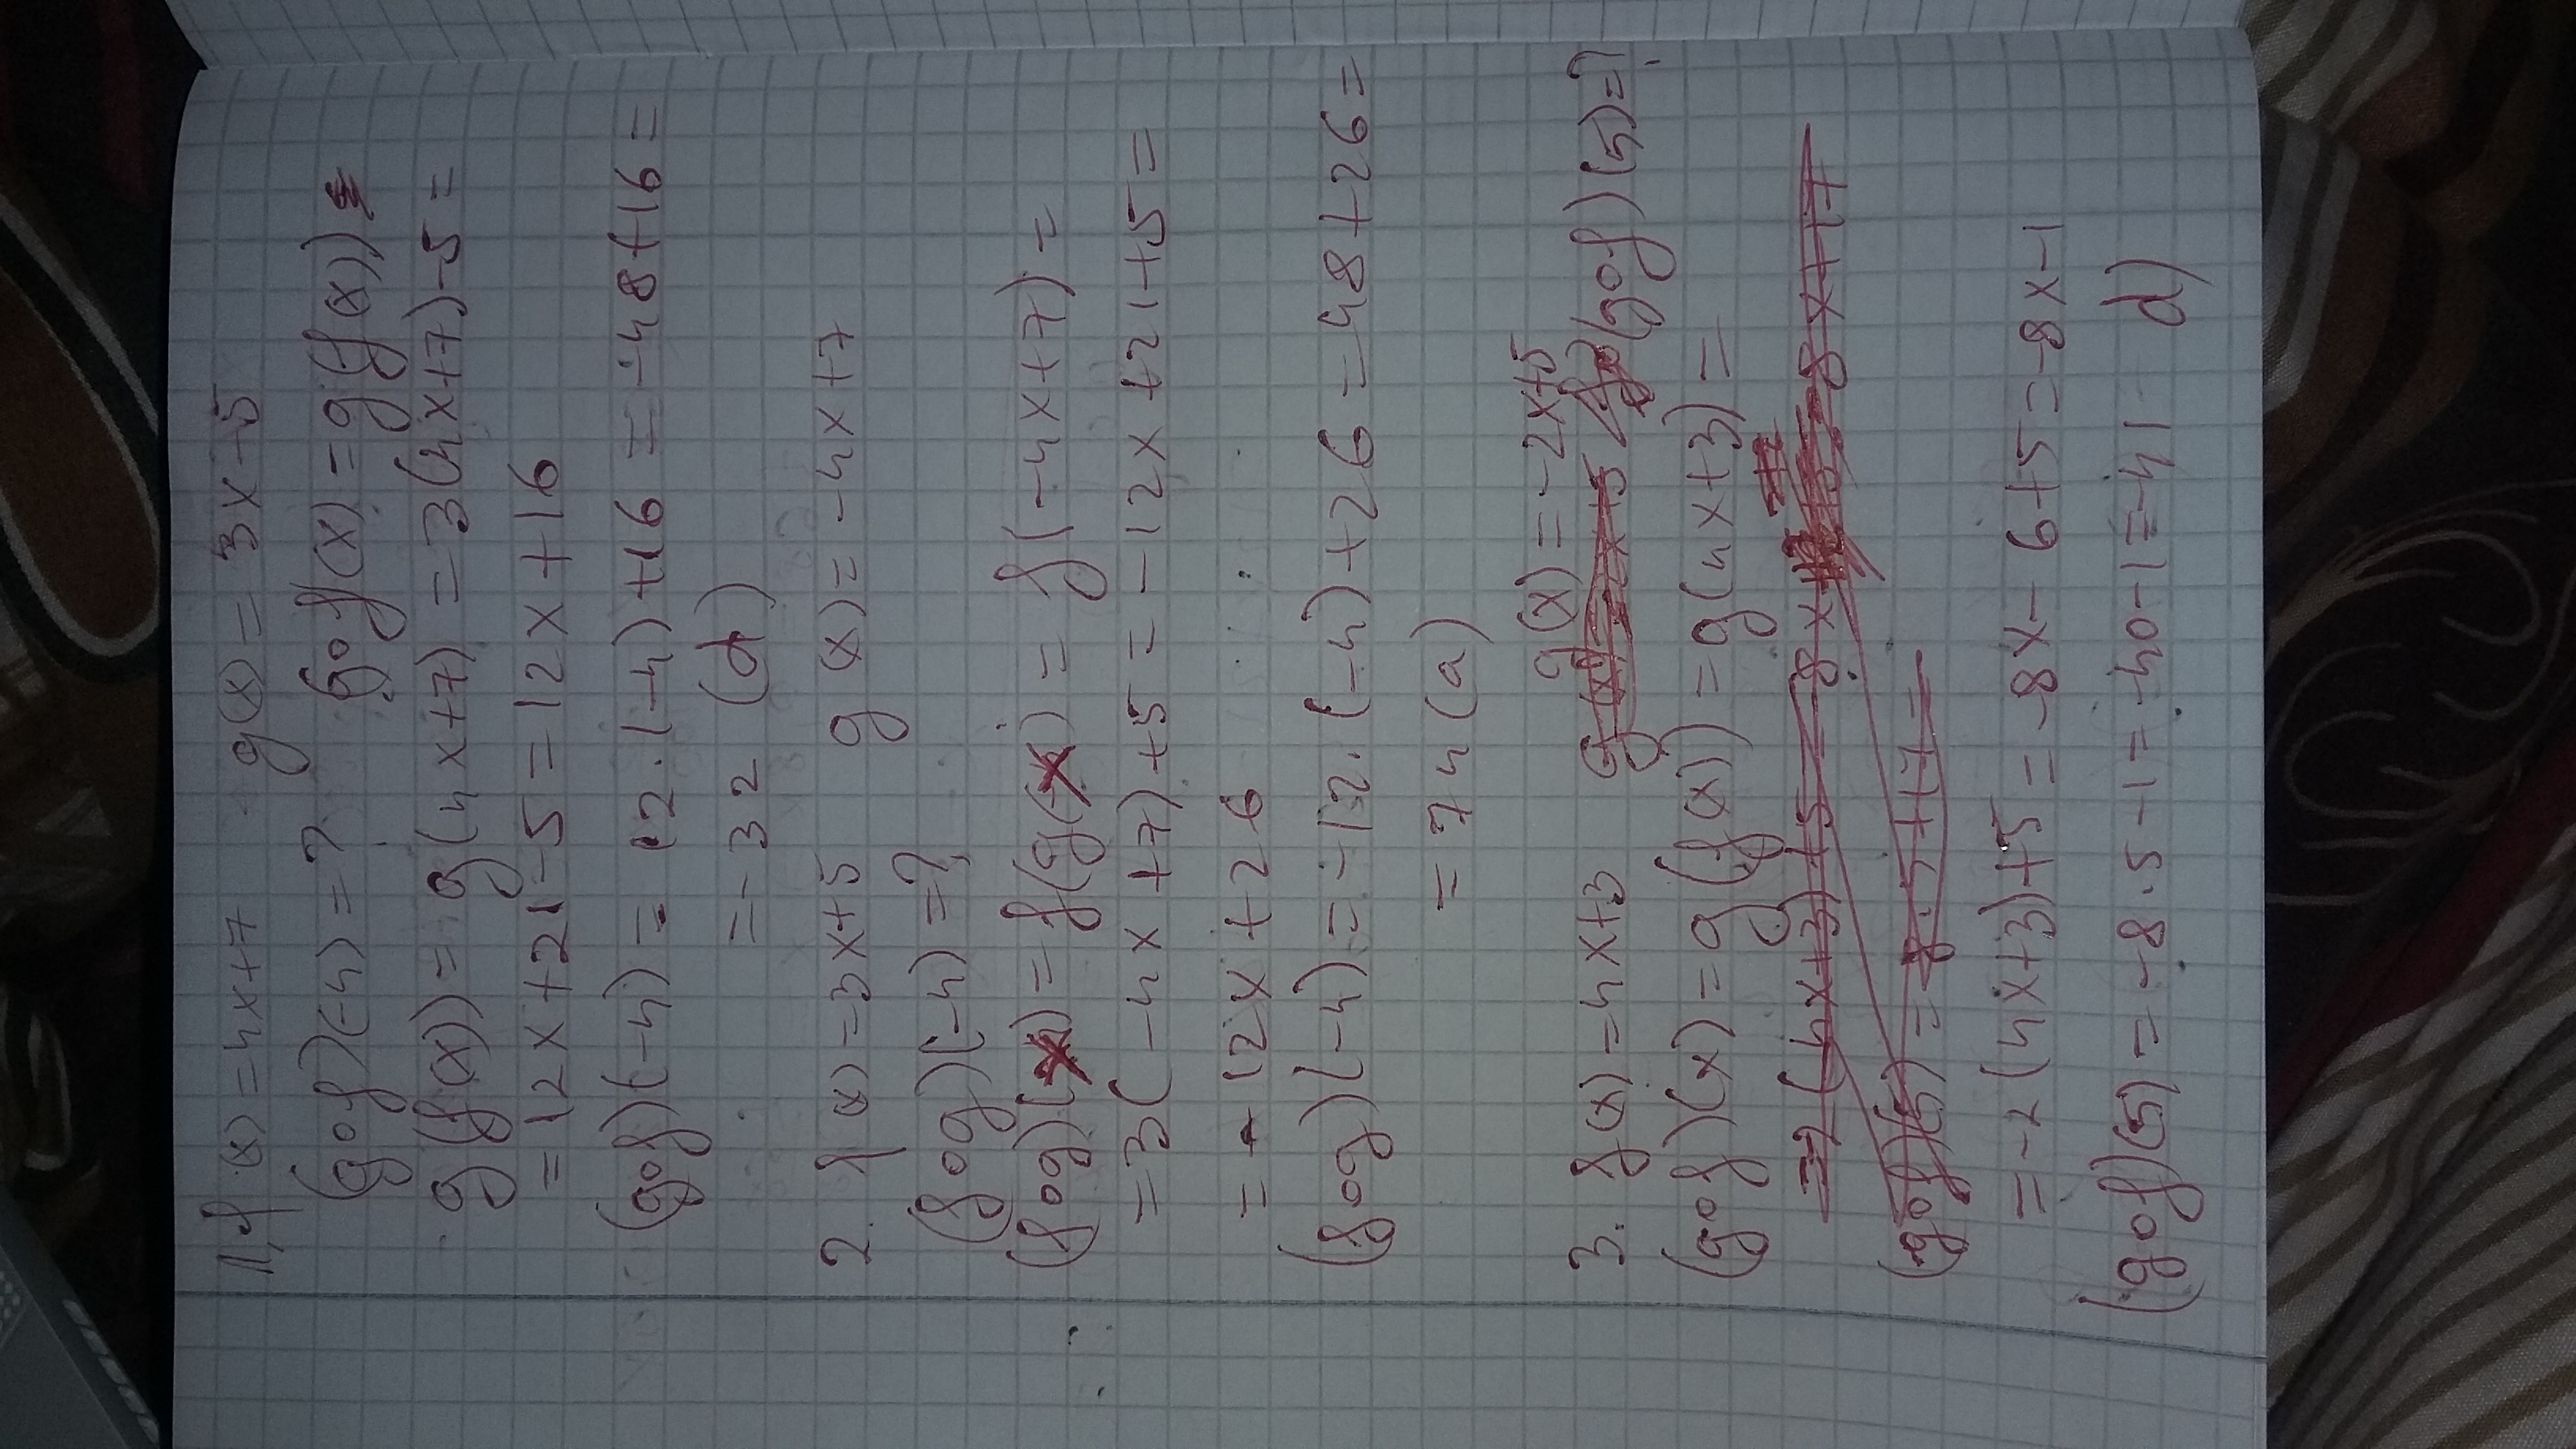 1. f(x)=4x+7 g(x)=3x-5
(gof)(-4)=? gof(x)=g(f(x))
g(f(x))=g(4x+7)=3(4x+7)-5=
=12x+21-5=12x+16
(gof)(-4)=12·(-4)+16=-48+16=
=-32 (d)
2. f(x)=3x+5 g(x)=-4x+7
(fog)(-4)=?
(fog)(x)=f(g(x))=f(-4x+7)=
=3(-4x+7)+5=-12x+21+5=
=-12x+26
(fog)(-4)=-12·(-4)+26=48+26=
=74 (a)
g(x)=-2x+5
3. f(x)=4x+3 (gof)(5)=?
(gof)(x)=g(f(x))=g(4x+3)=
(gof)(5)=
=-2(4x+3)+5=-8x-6+5=-8x-1
(gof)(5)=-8·5-1=-40-1=-41 d)